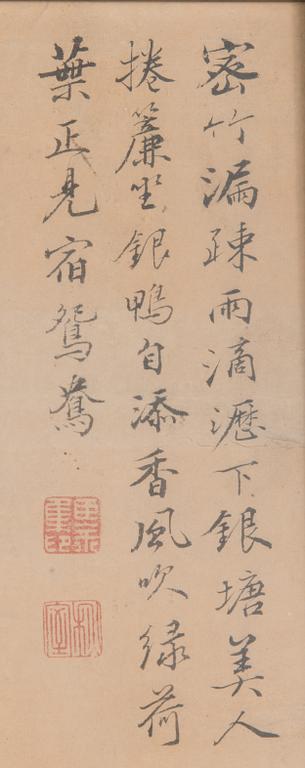 密竹漏疎雨滴瀝下銀塘美人
捲簾坐銀鴨自添香風吹緑荷
葉正見宿鴛鴦